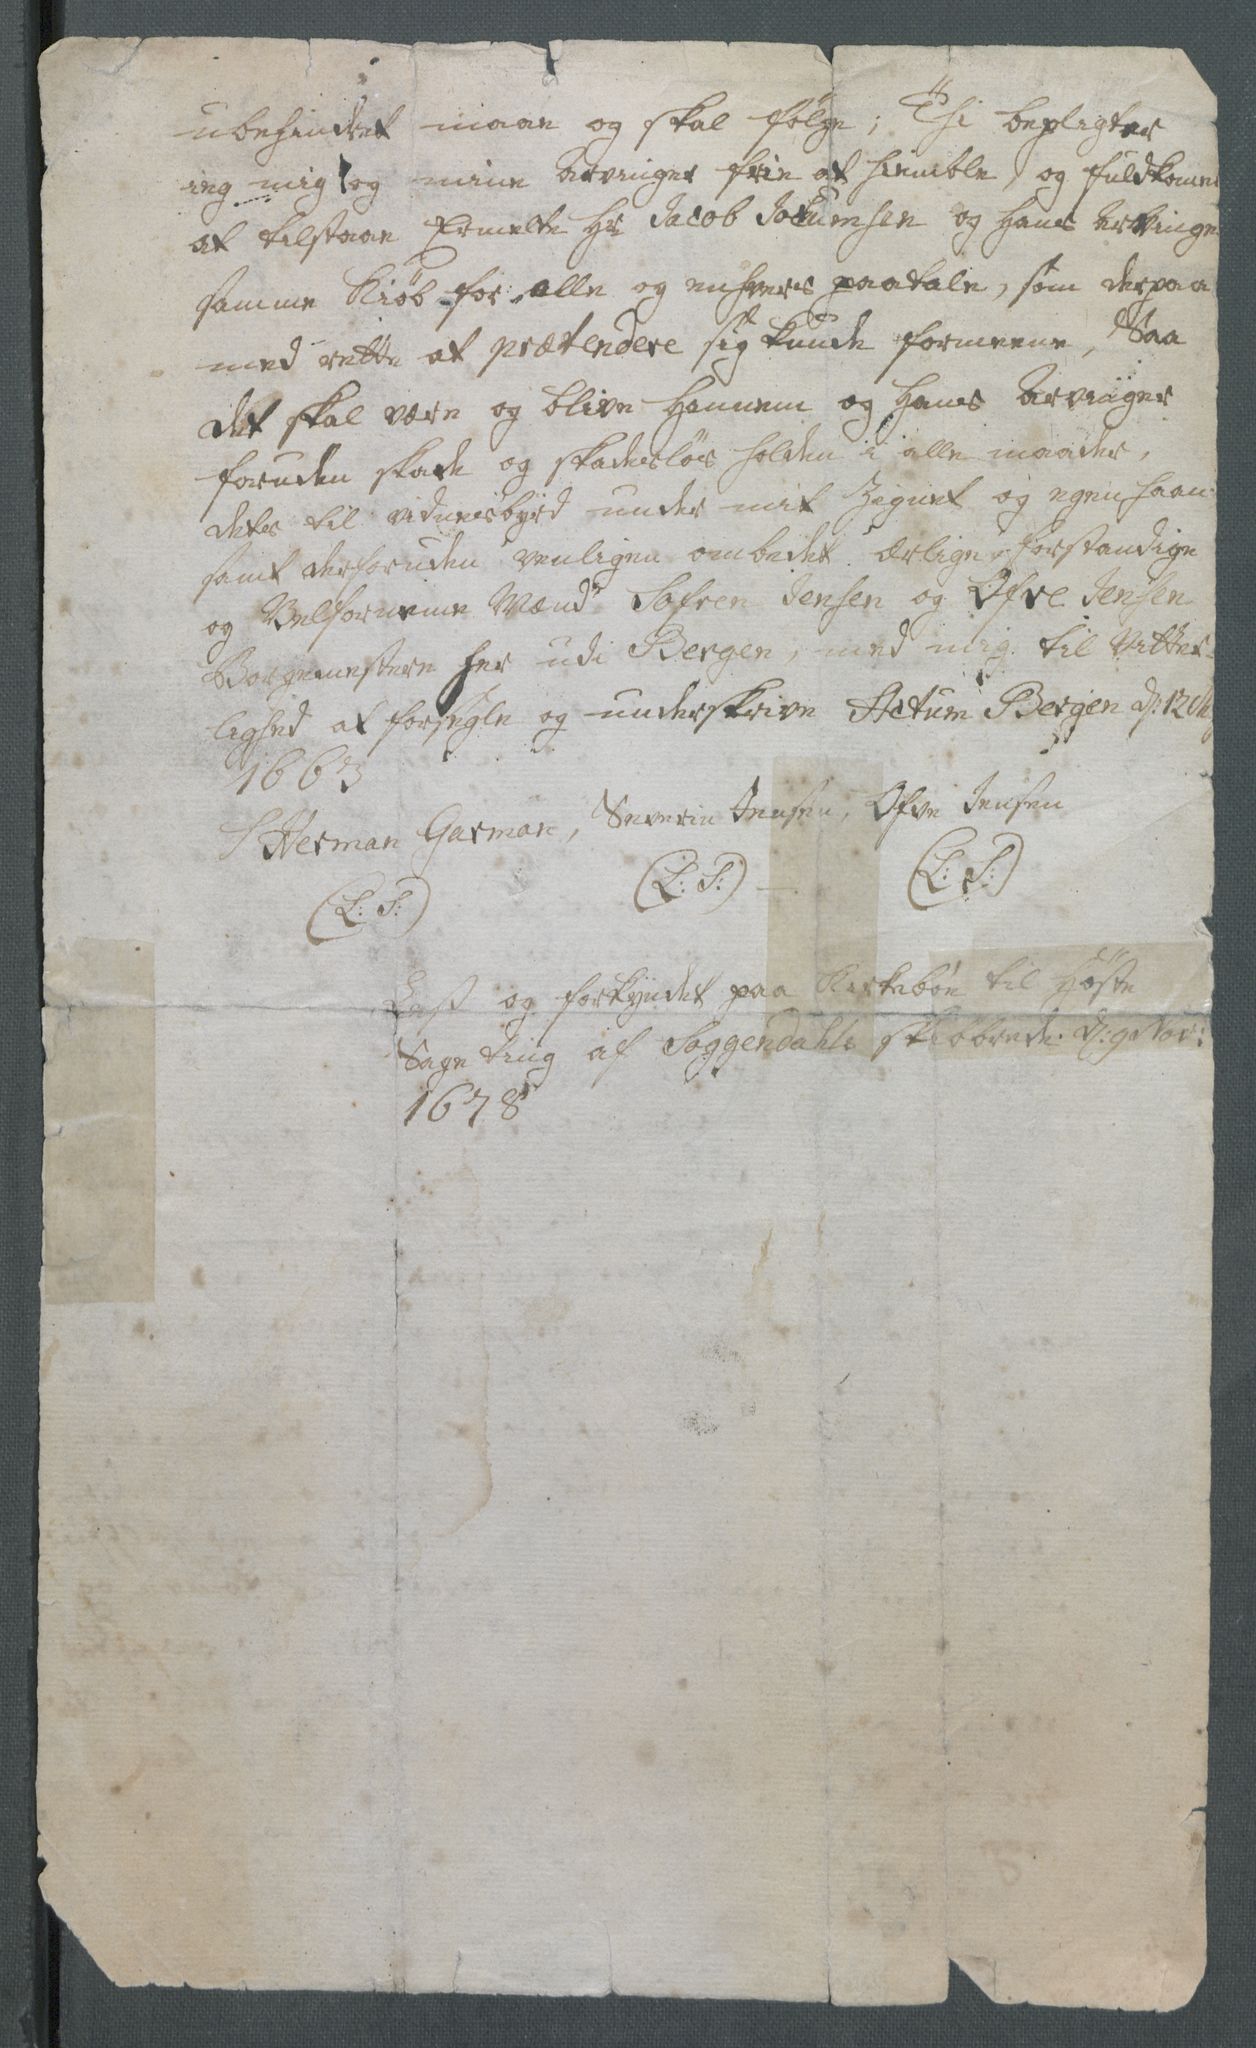 ubehindret maae og skal følge; Thi bepligter
ieg mig og mine Arvinger frie at hiemble, og fuldkomme
at tilstaae Ermelte Hr Jacob Jocumsen og hans Arvinge
samme Kiøb for alle og enhvers paatale, som derpaa
med rette at prætendere sig kunde formeene, Saa
det skal være og blive hannem og hans Arvinger
foruden skade og skadesløs holden i alle maader,
dets til vidnesbyrd under mit Zignet og egen haan
samt desforuden venligen ombedet ærlige, forstandige
og Velfornemme Mænd Søfren Jensen og Ofve Jensen
Borgemestere her udi Bergen, med mig til Vitter-
lighed at forsegle og underskrive Actum Bergen d: 12
1663
Herman Garman, Severin Jensen, Ofve Jensen
(L: S:) (L: S:) (L: S:)
Læst og forkyndet paa Kirkebøe til Høste
Sage ting af Soggendahls skibbrede d: 9 Nov:
1678